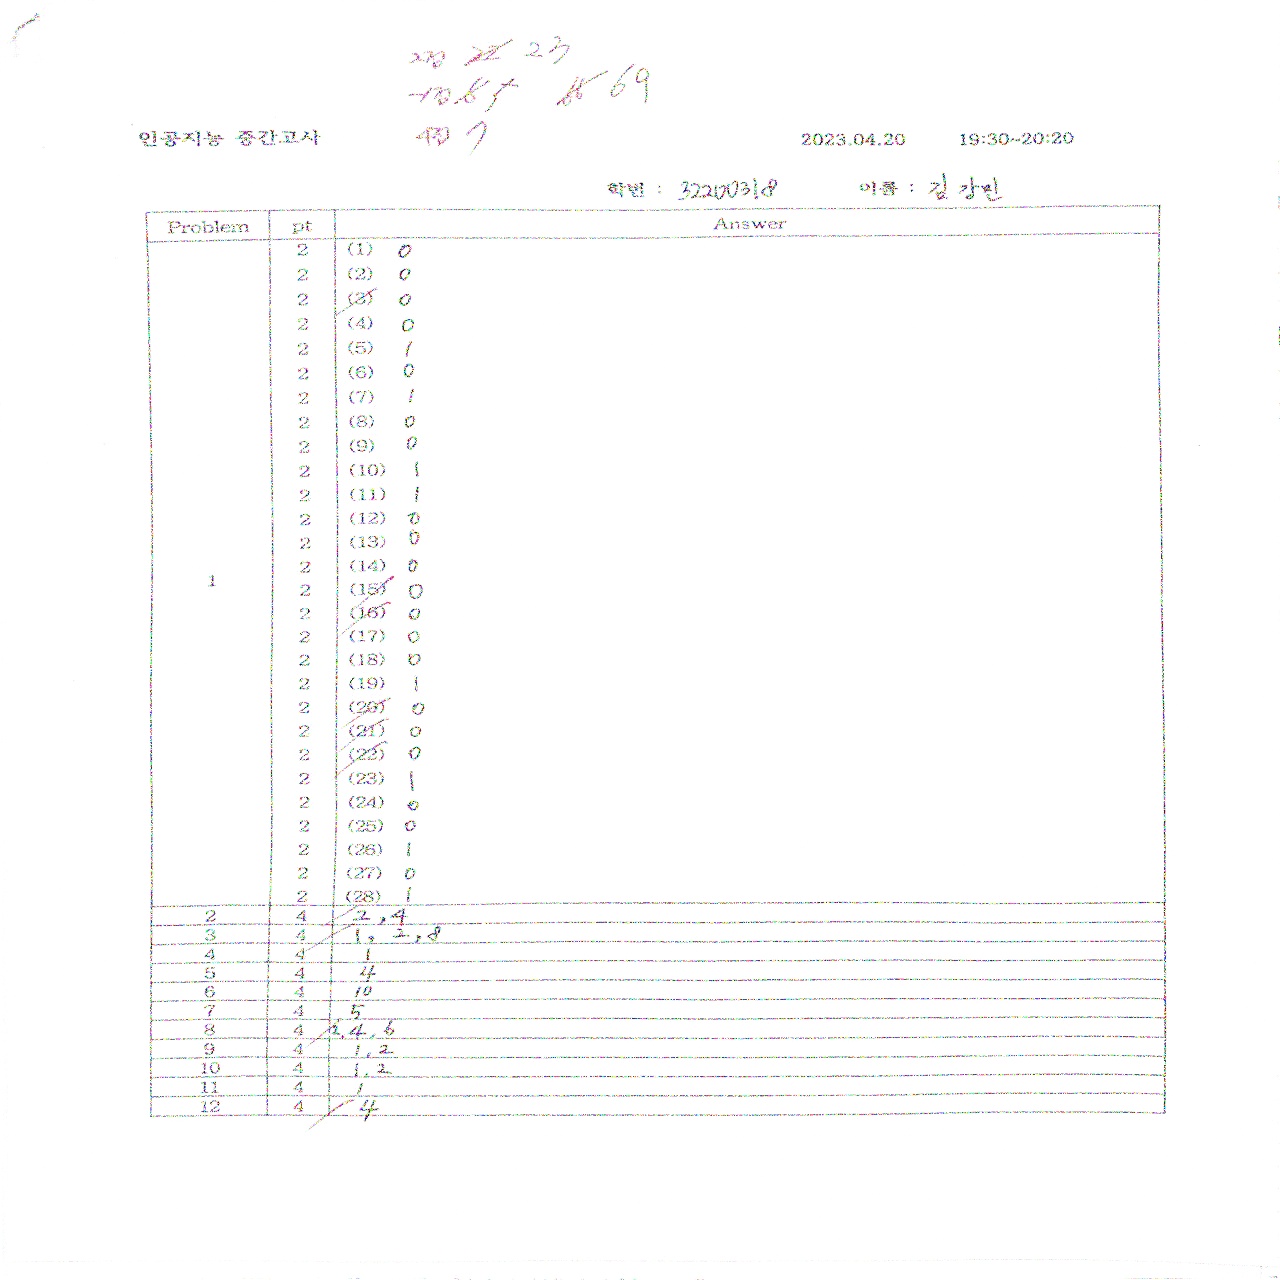 23
69
인공지능 중간고사 2023.04.20 19:30~20:20
학번 : 32200318 이름 : 김강민
Problem pt Answer
1
2 (1) 0
2 (2) 0
2 (3) 0
2 (4) 0
2 (5) 1
2 (6) 0
2 (7) 1
2 (8) 0
2 (9) 0
2 (10) 1
2 (11) 1
2 (12) 0
2 (13) 0
2 (14) 0
2 (15) 0
2 (16) 0
2 (17) 0
2 (18) 0
2 (19) 1
2 (20) 0
2 (21) 0
2 (22) 0
2 (23) 1
2 (24) 0
2 (25) 0
2 (26) 1
2 (27) 0
2 (28) 1
2 4 2,4
3 4 1, 2, 8
4 4 1
5 4 4
6 4 10
7 4 5
8 4 2,4,6
9 4 1,2
10 4 1,2
11 4 1
12 4 4